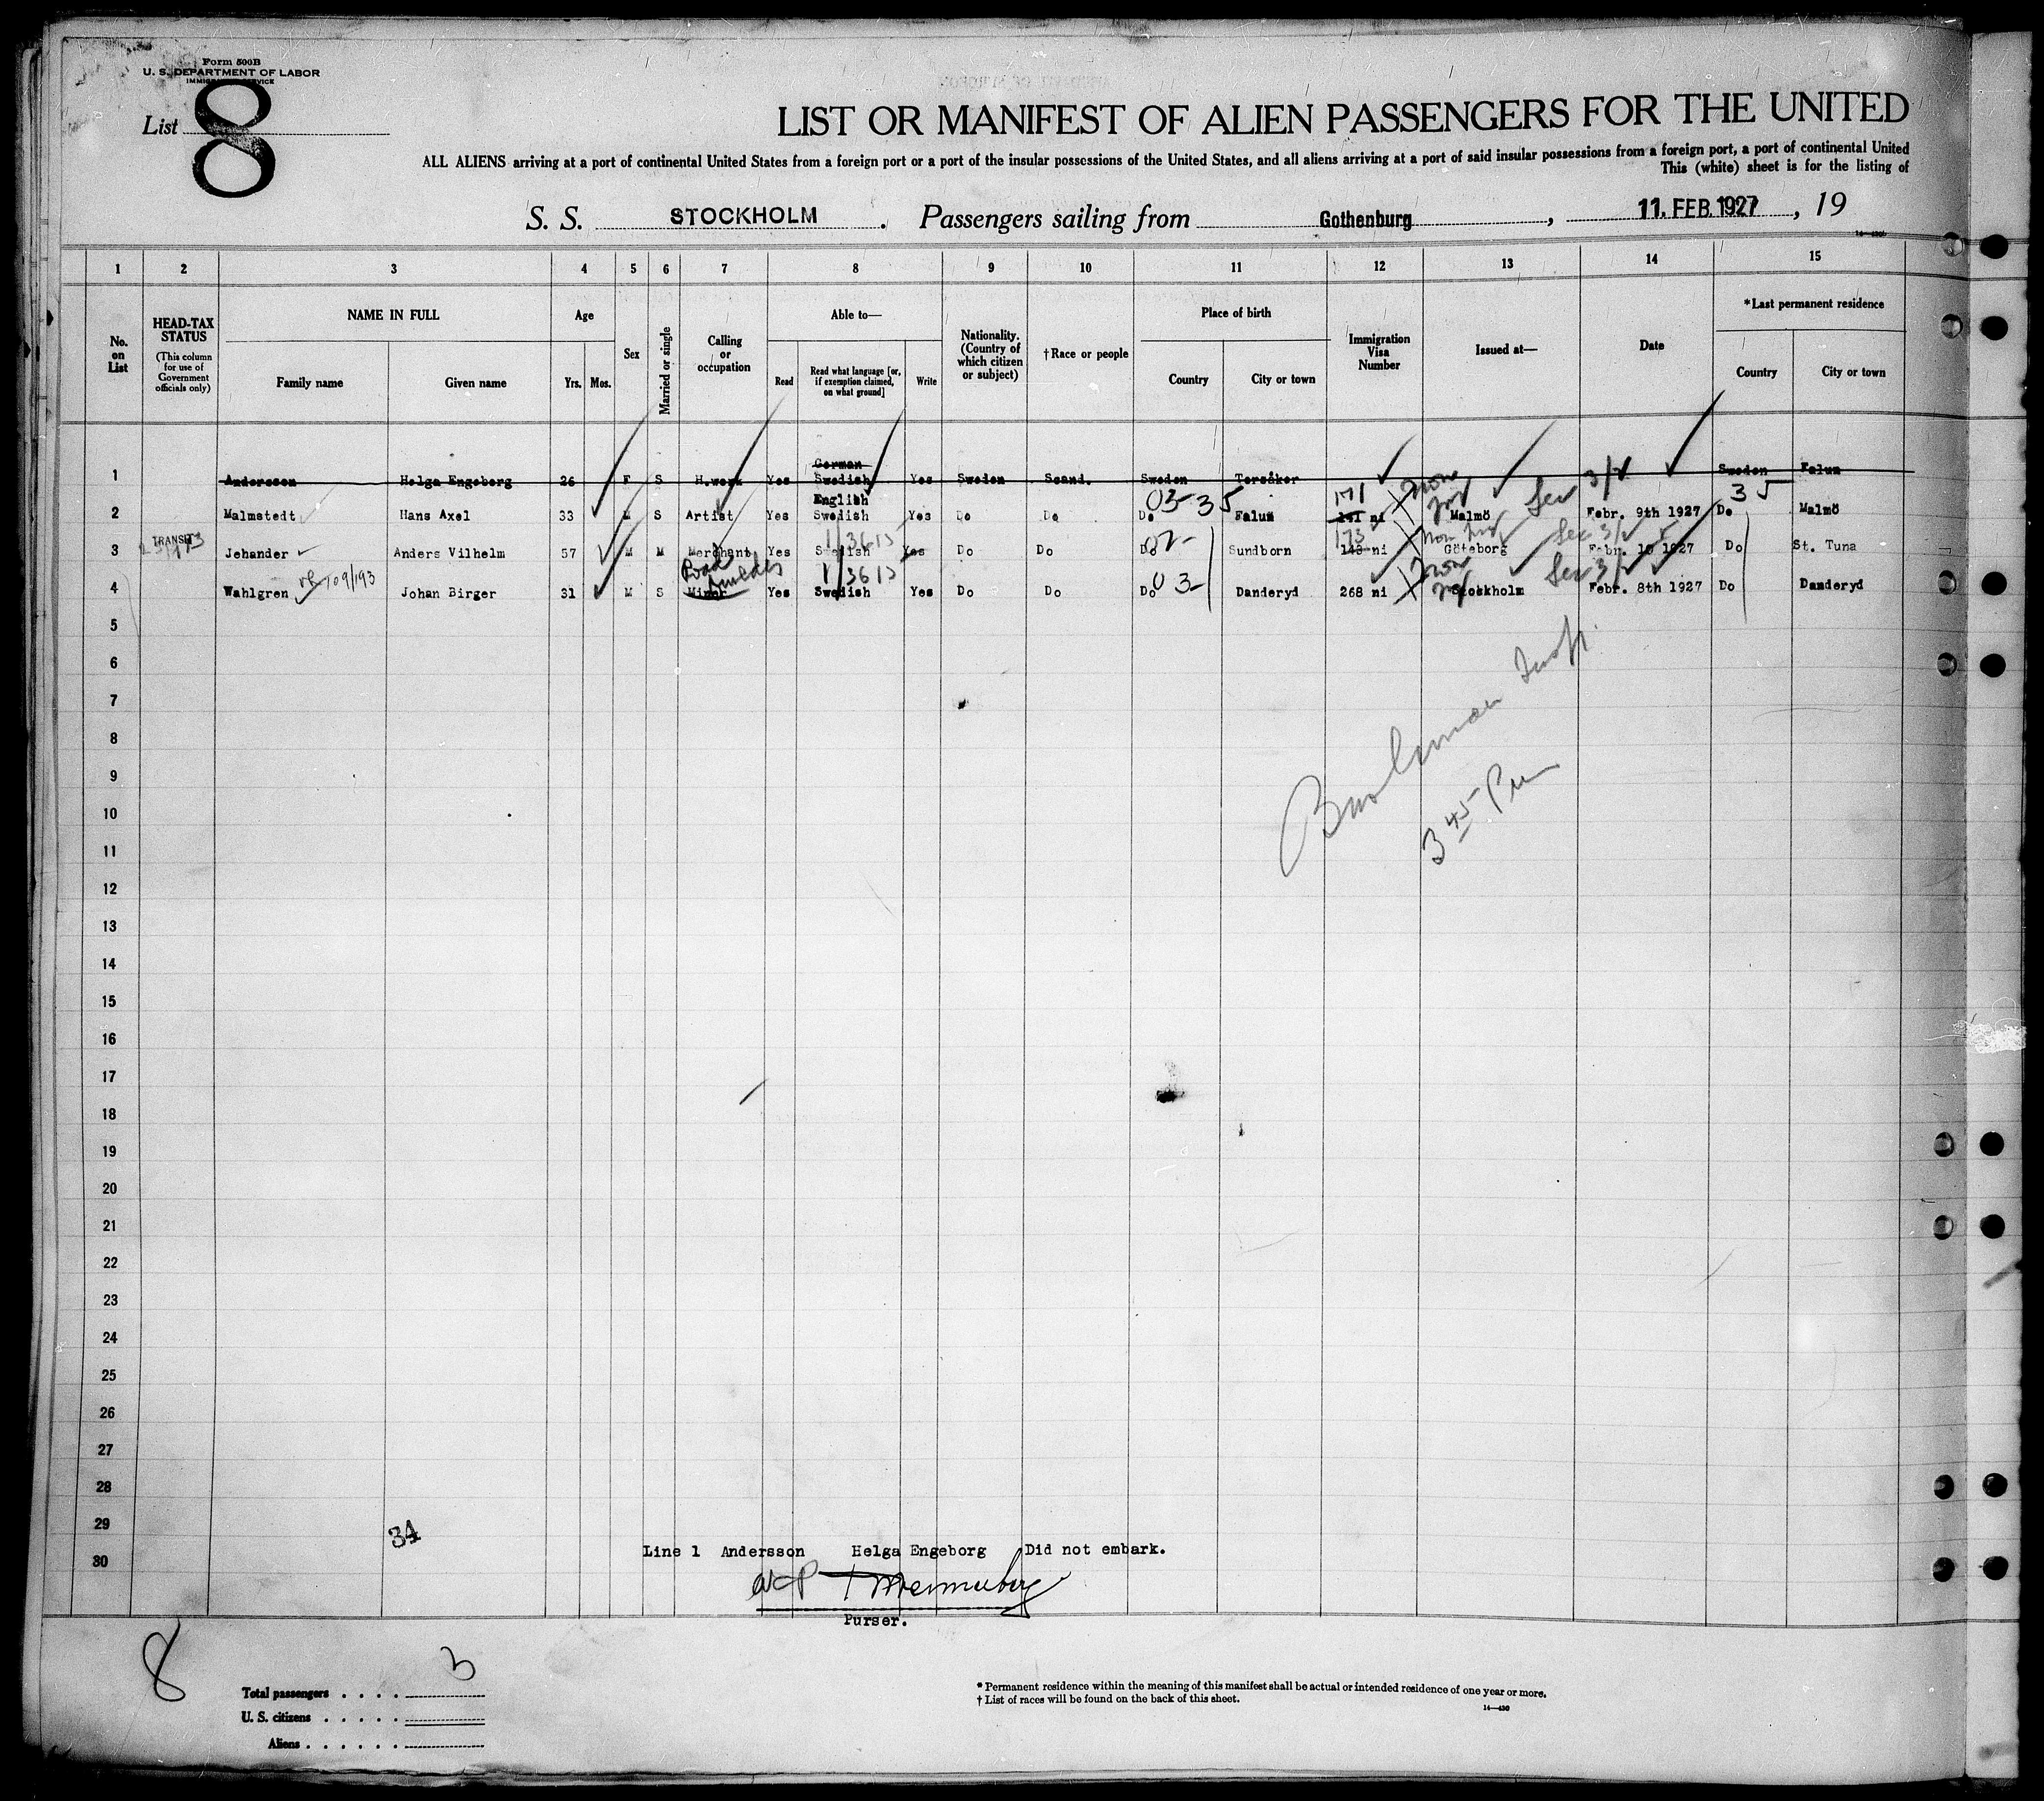 Form 500B
U. S. DEPARTMENT OF LABOR
IMMIGRATION SERVICE
List 8
LIST OR MANIFEST OF ALIEN PASSENGERS FOR THE UNITED
ALL ALIENS arriving at a port of continental United States from a foreign port or a port of the insular possessions of the United States, and all aliens arriving at a port of said insular possessions from a foreign port, a port of continental United
This (white) sheet is for the listing of
S. S. STOCKHOLM. Passengers sailing from Gothenburg, 11. FEB. 1927, 19
1 2 3 4 5 6 7 8 9 10 11 12 13 14 15
No. on List
HEAD-TAX STATUS (This column for use of Government officials only)
NAME IN FULL Family name Given name
Age Yrs. Mos.
Sex
Married or single
Calling or occupation
Able to— Read Read what language [or, if exemption claimed, on what ground] Write
Nationality. (Country of which citizen or subject)
†Race or people
Place of birth Country City or town
Immigration Visa Number
Issued at—
Date
*Last permanent residence Country City or town
German
1 Andersson Helga Engeborg 26 F S H.work Yes Swedish Yes Sweden Scand. Sweden Torsåker Sweden Falun
English 03-35 171 Non Sec 3/2 35
2 Malmstedt Hans Axel 33 M S Artist Yes Swedish Yes Do Do Do Falun 141 ni Malmö Febr. 9th 1927 Do Malmö
TRANSIT 1/3615 173 Non Sec 3/2
3 Jehander Anders Vilhelm 57 M M Merchant Yes Swedish Yes Do Do Do Sundborn 143 ni Göteborg Febr. 10 1927 Do St. Tuna
Road Builder 1/3615 03- Non Sec 3/2
4 Wahlgren 109/193 Johan Birger 31 M S Miner Yes Swedish Yes Do Do Do Danderyd 268 ni Stockholm Febr. 8th 1927 Do Danderyd
5
6
7
8
9
10
11
12
13
14
15
16
17
18
19
20
21
22
23
24
25
26
27
28
29
30
Insp.
3 45 Pm
34
Line 1 Andersson Helga Engeborg Did not embark.
Purser.
8
3
Total passengers . . . .
U. S. citizens . . . . .
Aliens . . . . . .
* Permanent residence within the meaning of this manifest shall be actual or intended residence of one year or more.
† List of races will be found on the back of this sheet.
14—430